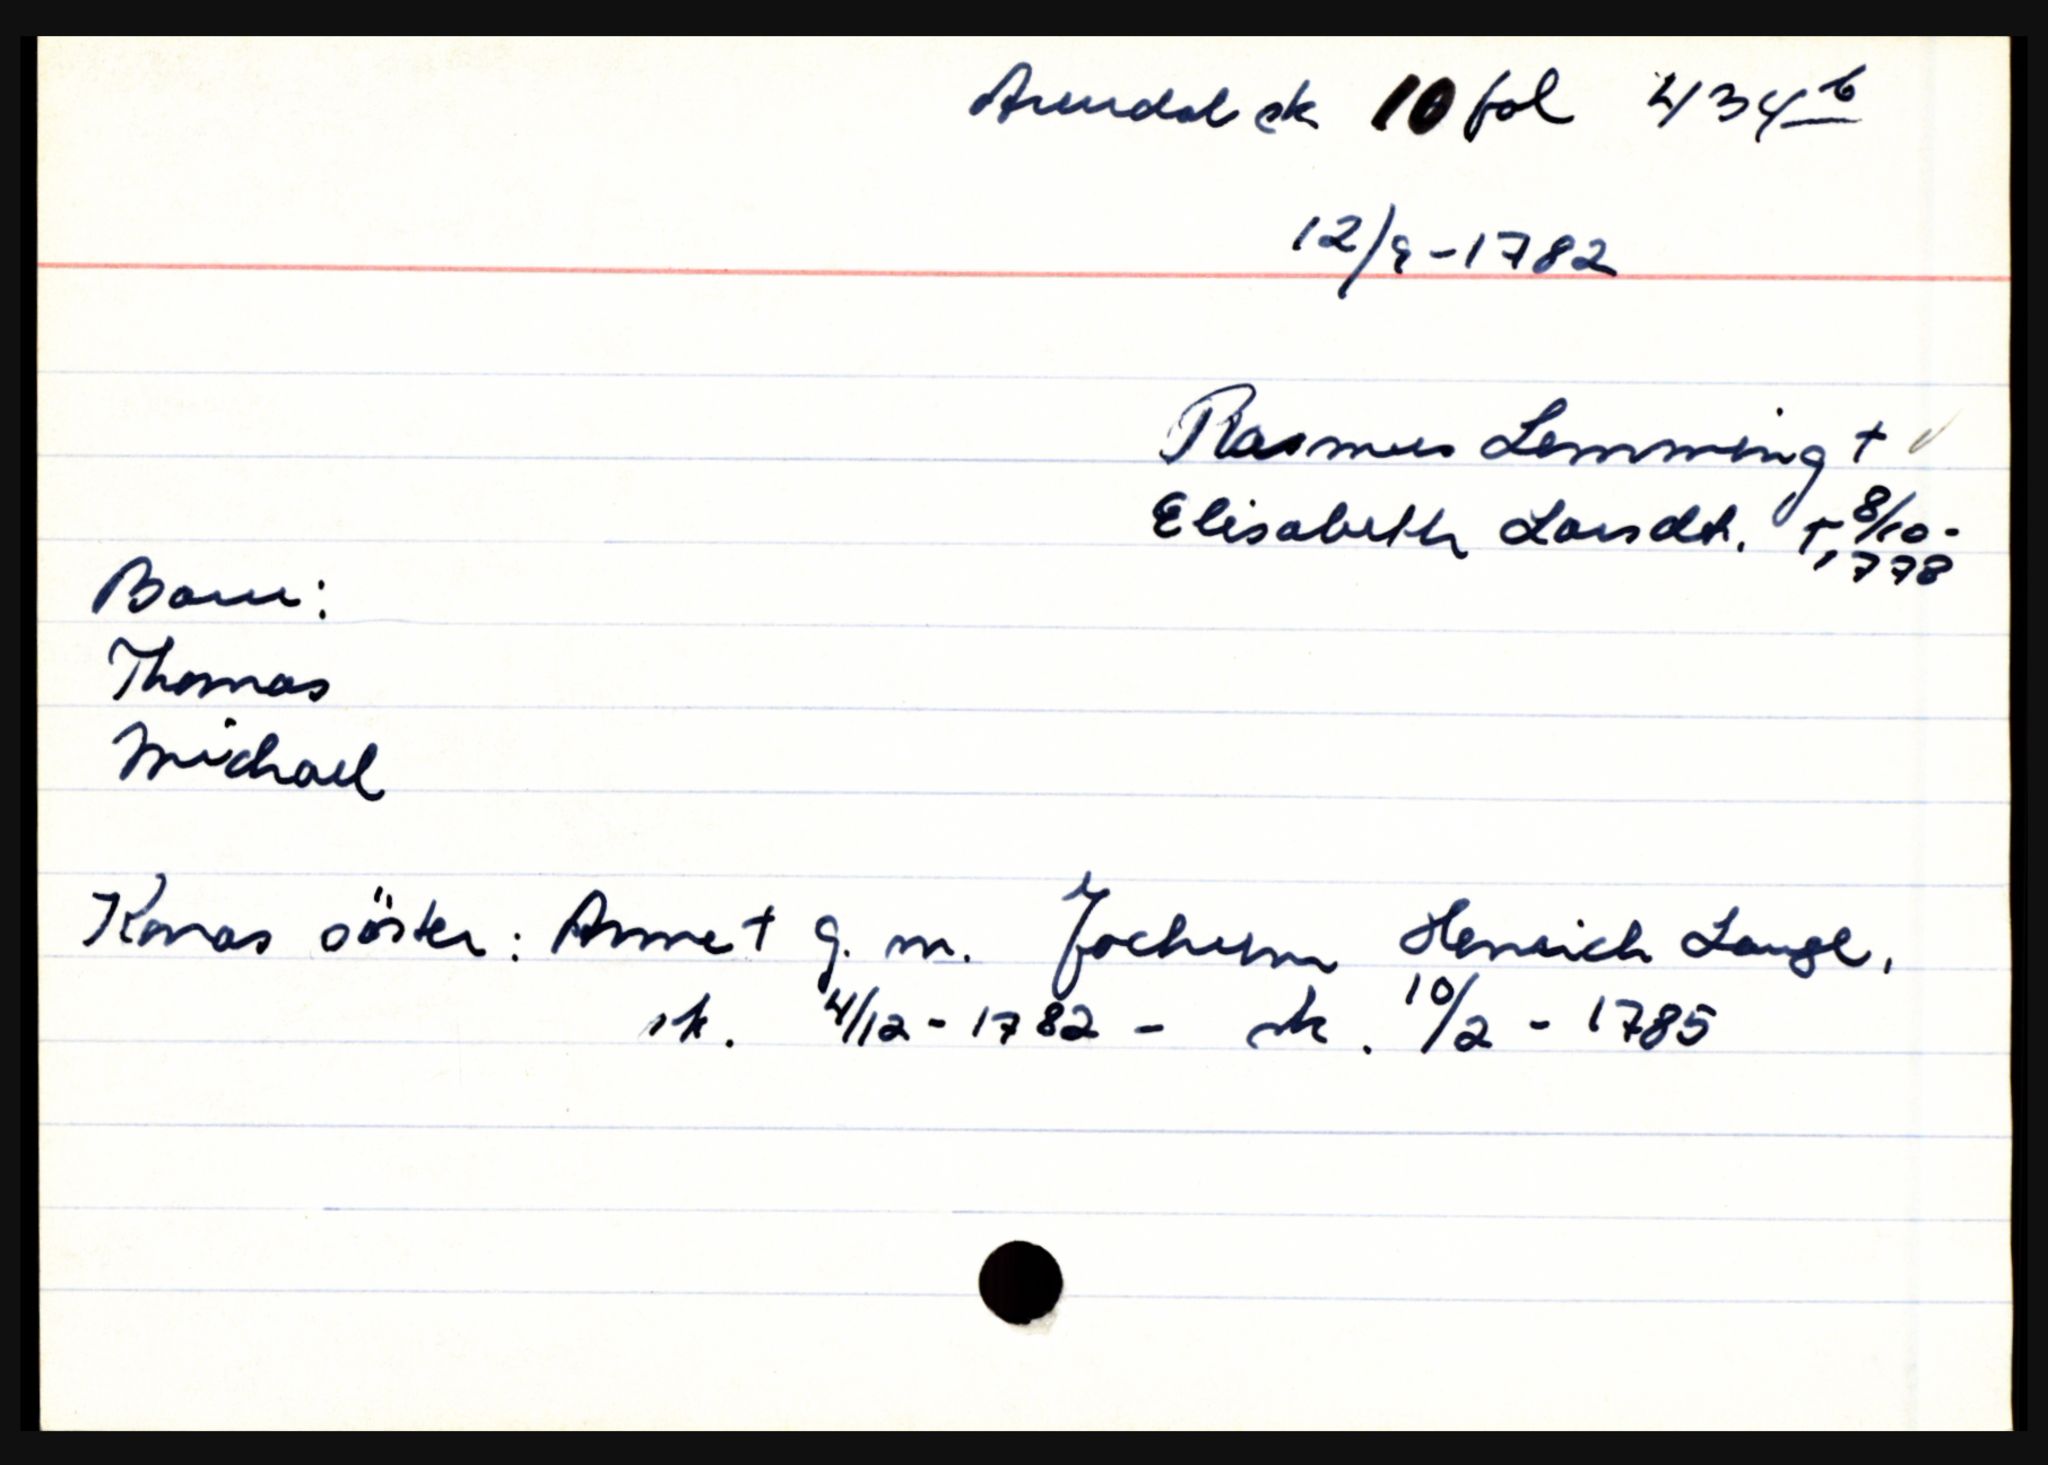 Arendal sk 10 fol 434 b
12/9-1782
Rasmus Lemming +
Elisabeth Larsdt. + 8/10-
1778
Barn:
Thomas
Michael
Konas söster: Anne + g. m. Jochum Henrich Lange,
sk. 4/12-1782 - sk. 10/2 - 1785